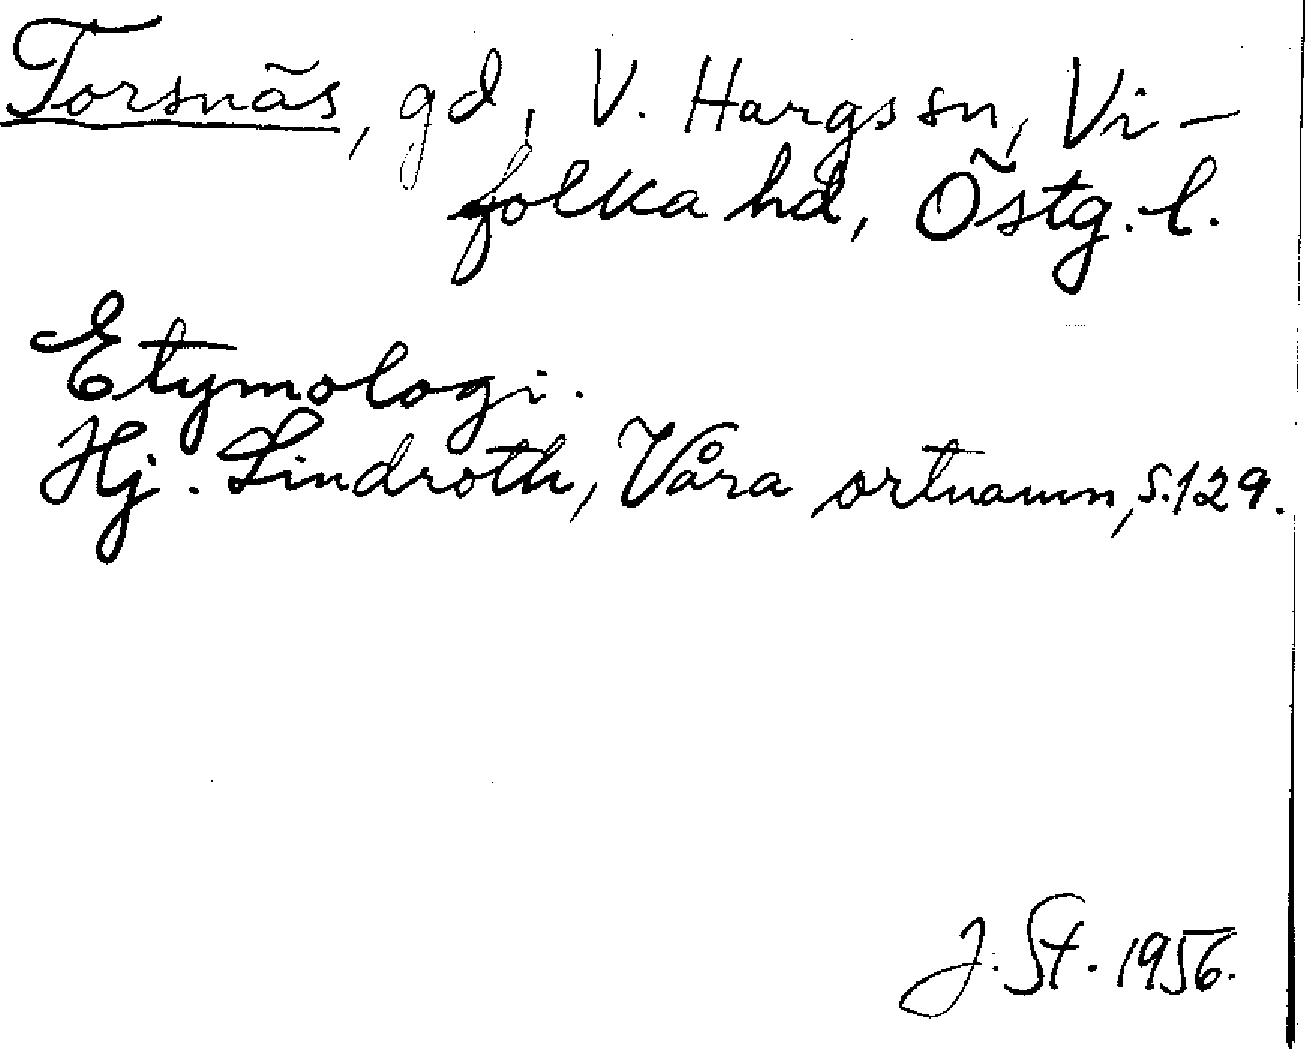 Torsnäs, gd, V. Hargs sn, Vi-
folka hd, Östg. l.
Etymologi.
Hj. Lindroth, Våra ortnamn, s. 129.
J. St. 1956.